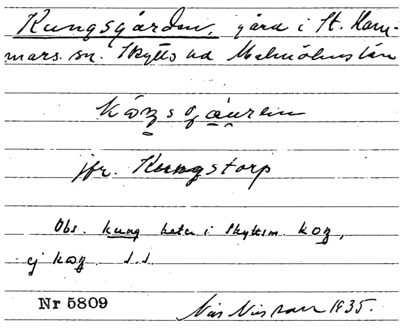 Kungsgården, gård i St. Ham-
mars sn. Skytts hd Malmöhus län
jfr. Kungstorp
Obs. kung heter i Skytts
ej s.s.
Nr 5809 Nils Nilsson 1935.